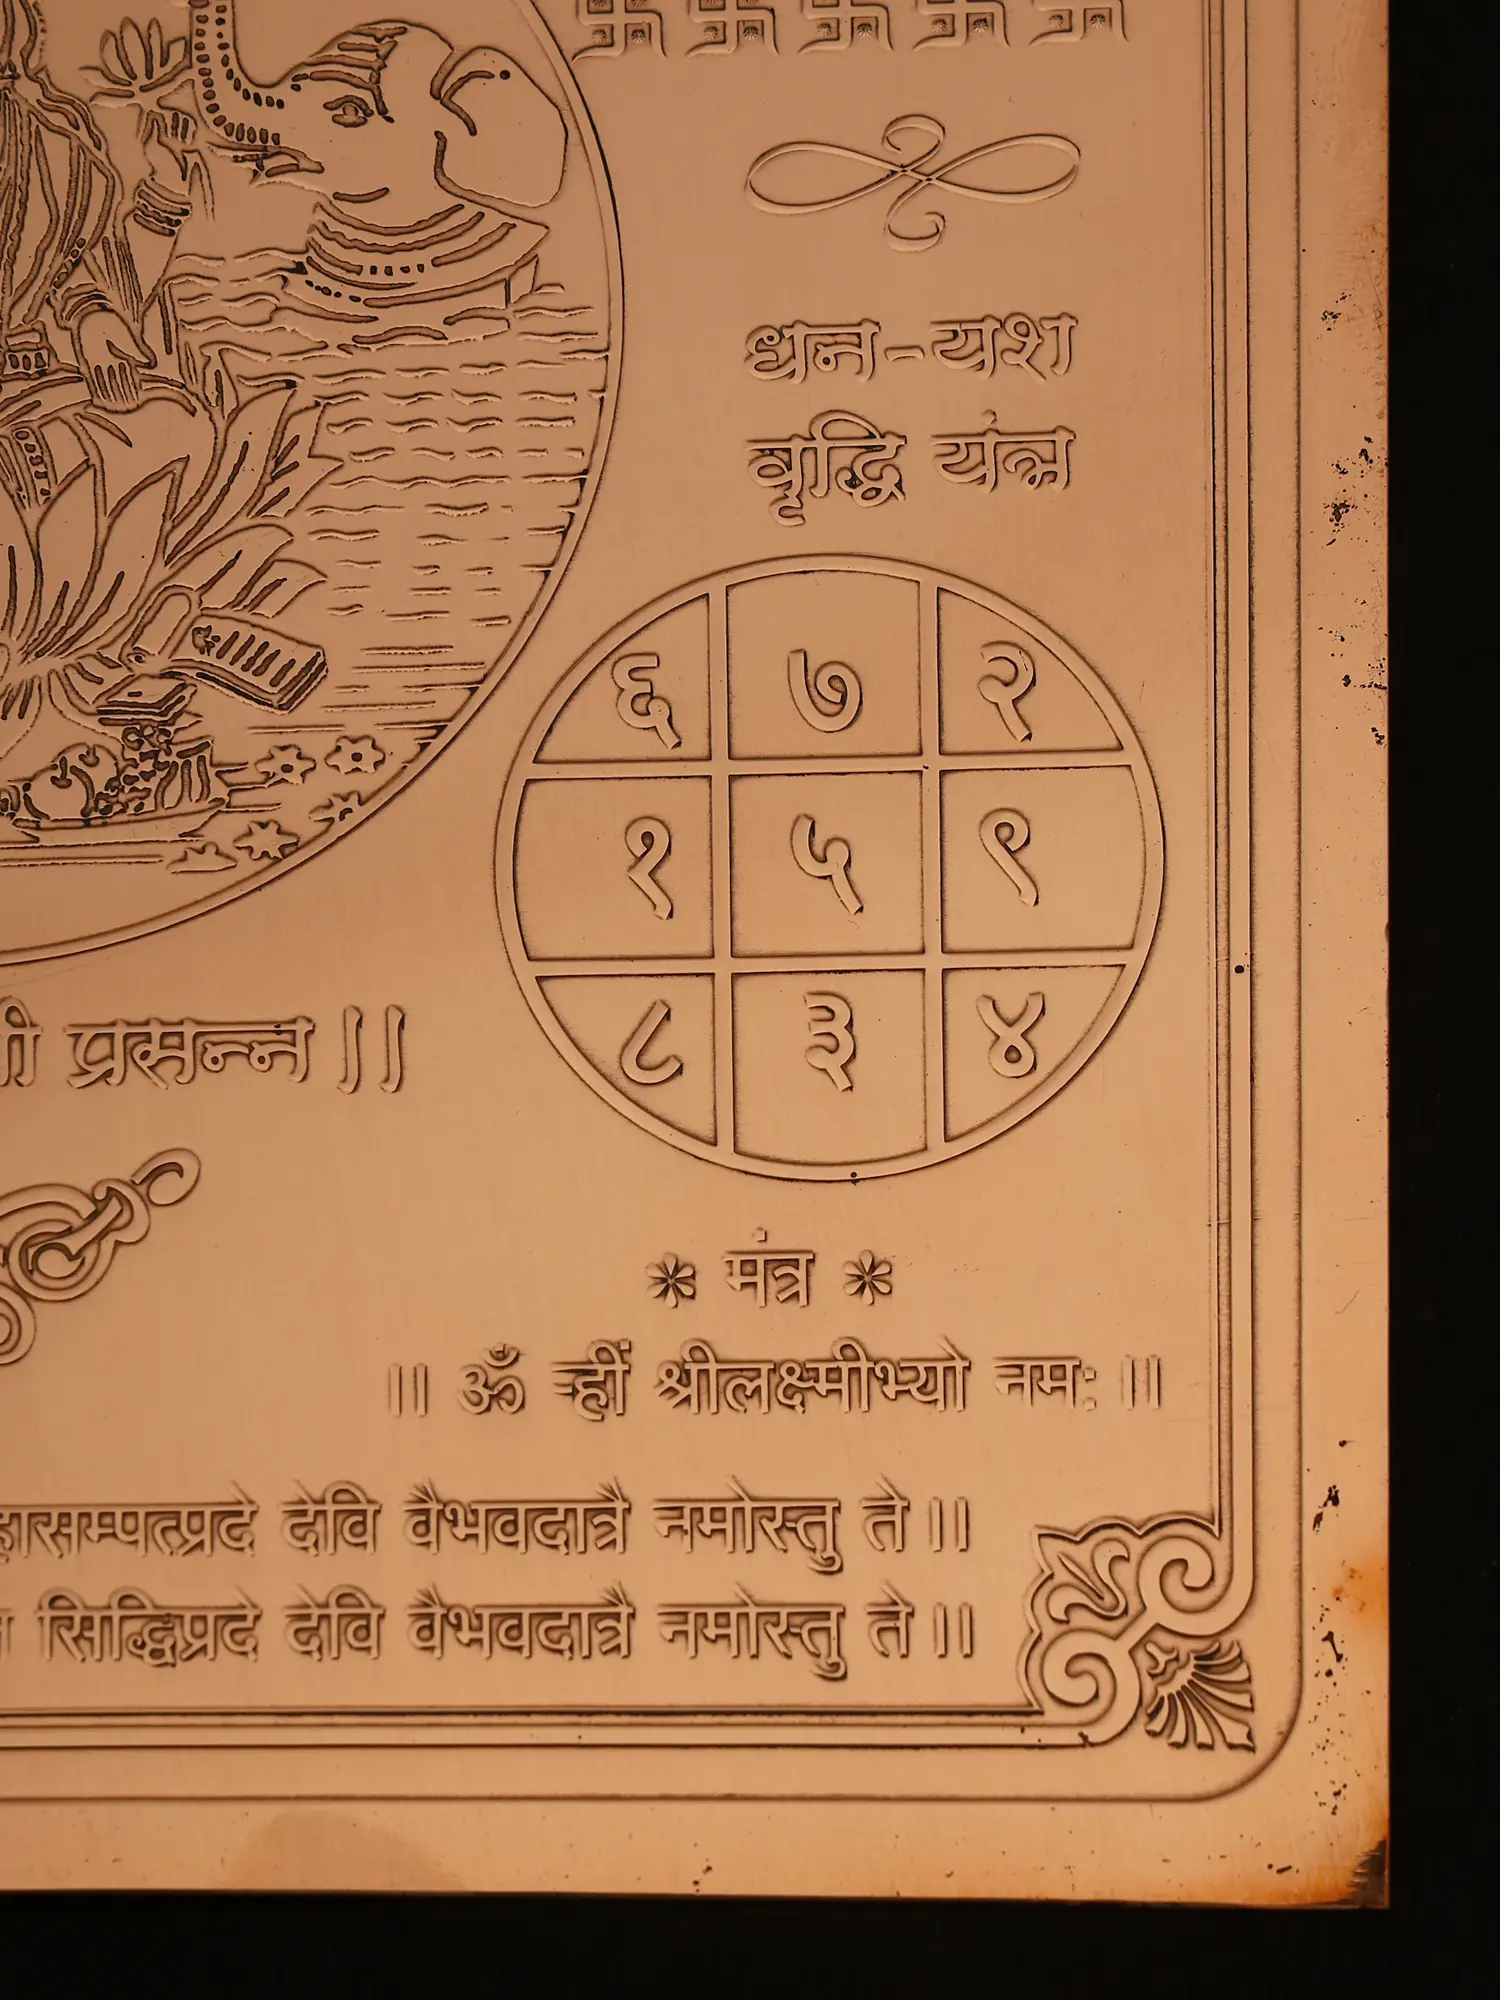 धन-यश
वृद्धि यंत्र
६ ७ २
१ ५ ९
८ ३ ४
प्रसन्न ||
* मंत्र *
|| ॐ ह्रीं श्रीलक्ष्मीभ्यो नमः ||
देवि वैभवदात्रै नमोस्तु ते ||
सिद्धिप्रदे देवि वैभवदात्रै नमोस्तु ते ||